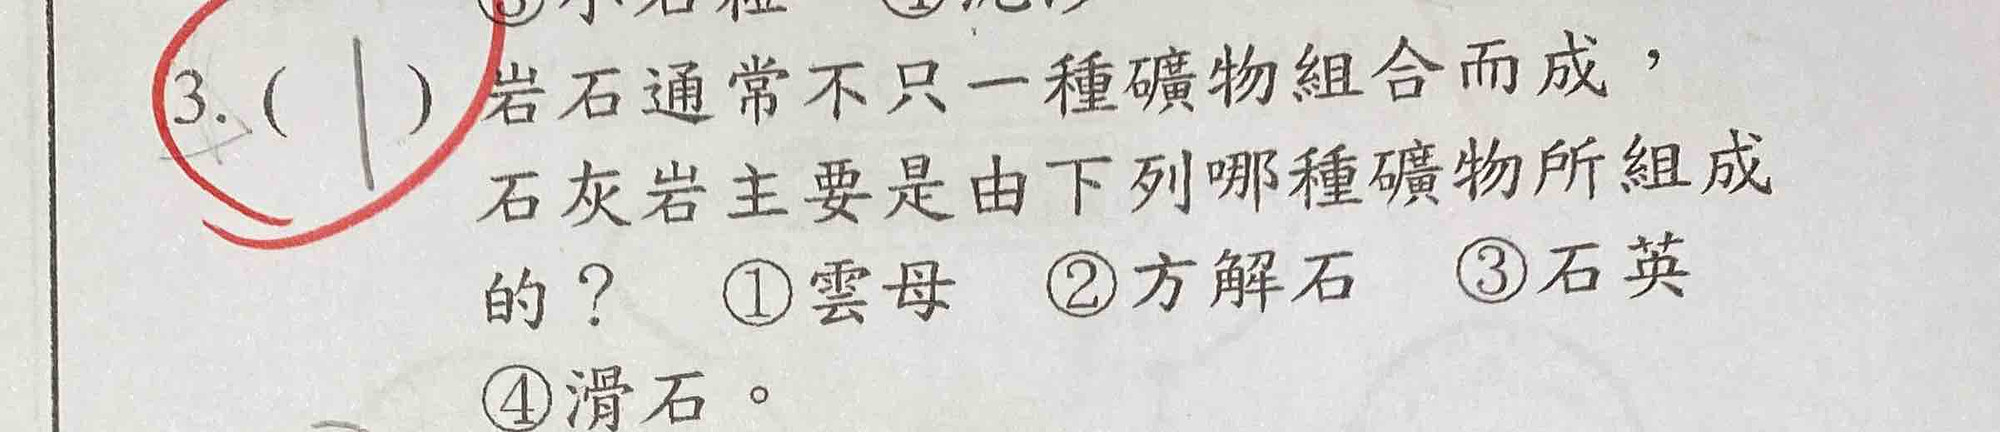 3. ( 1 ) 岩石通常不只一種礦物組合而成，
石灰岩主要是由下列哪種礦物所組成
的？ ①雲母 ②方解石 ③石英
④滑石。